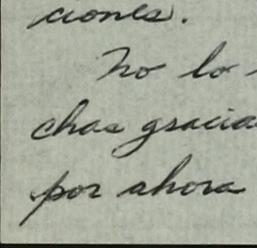 ciones.
No lo
chas gracia
por ahora